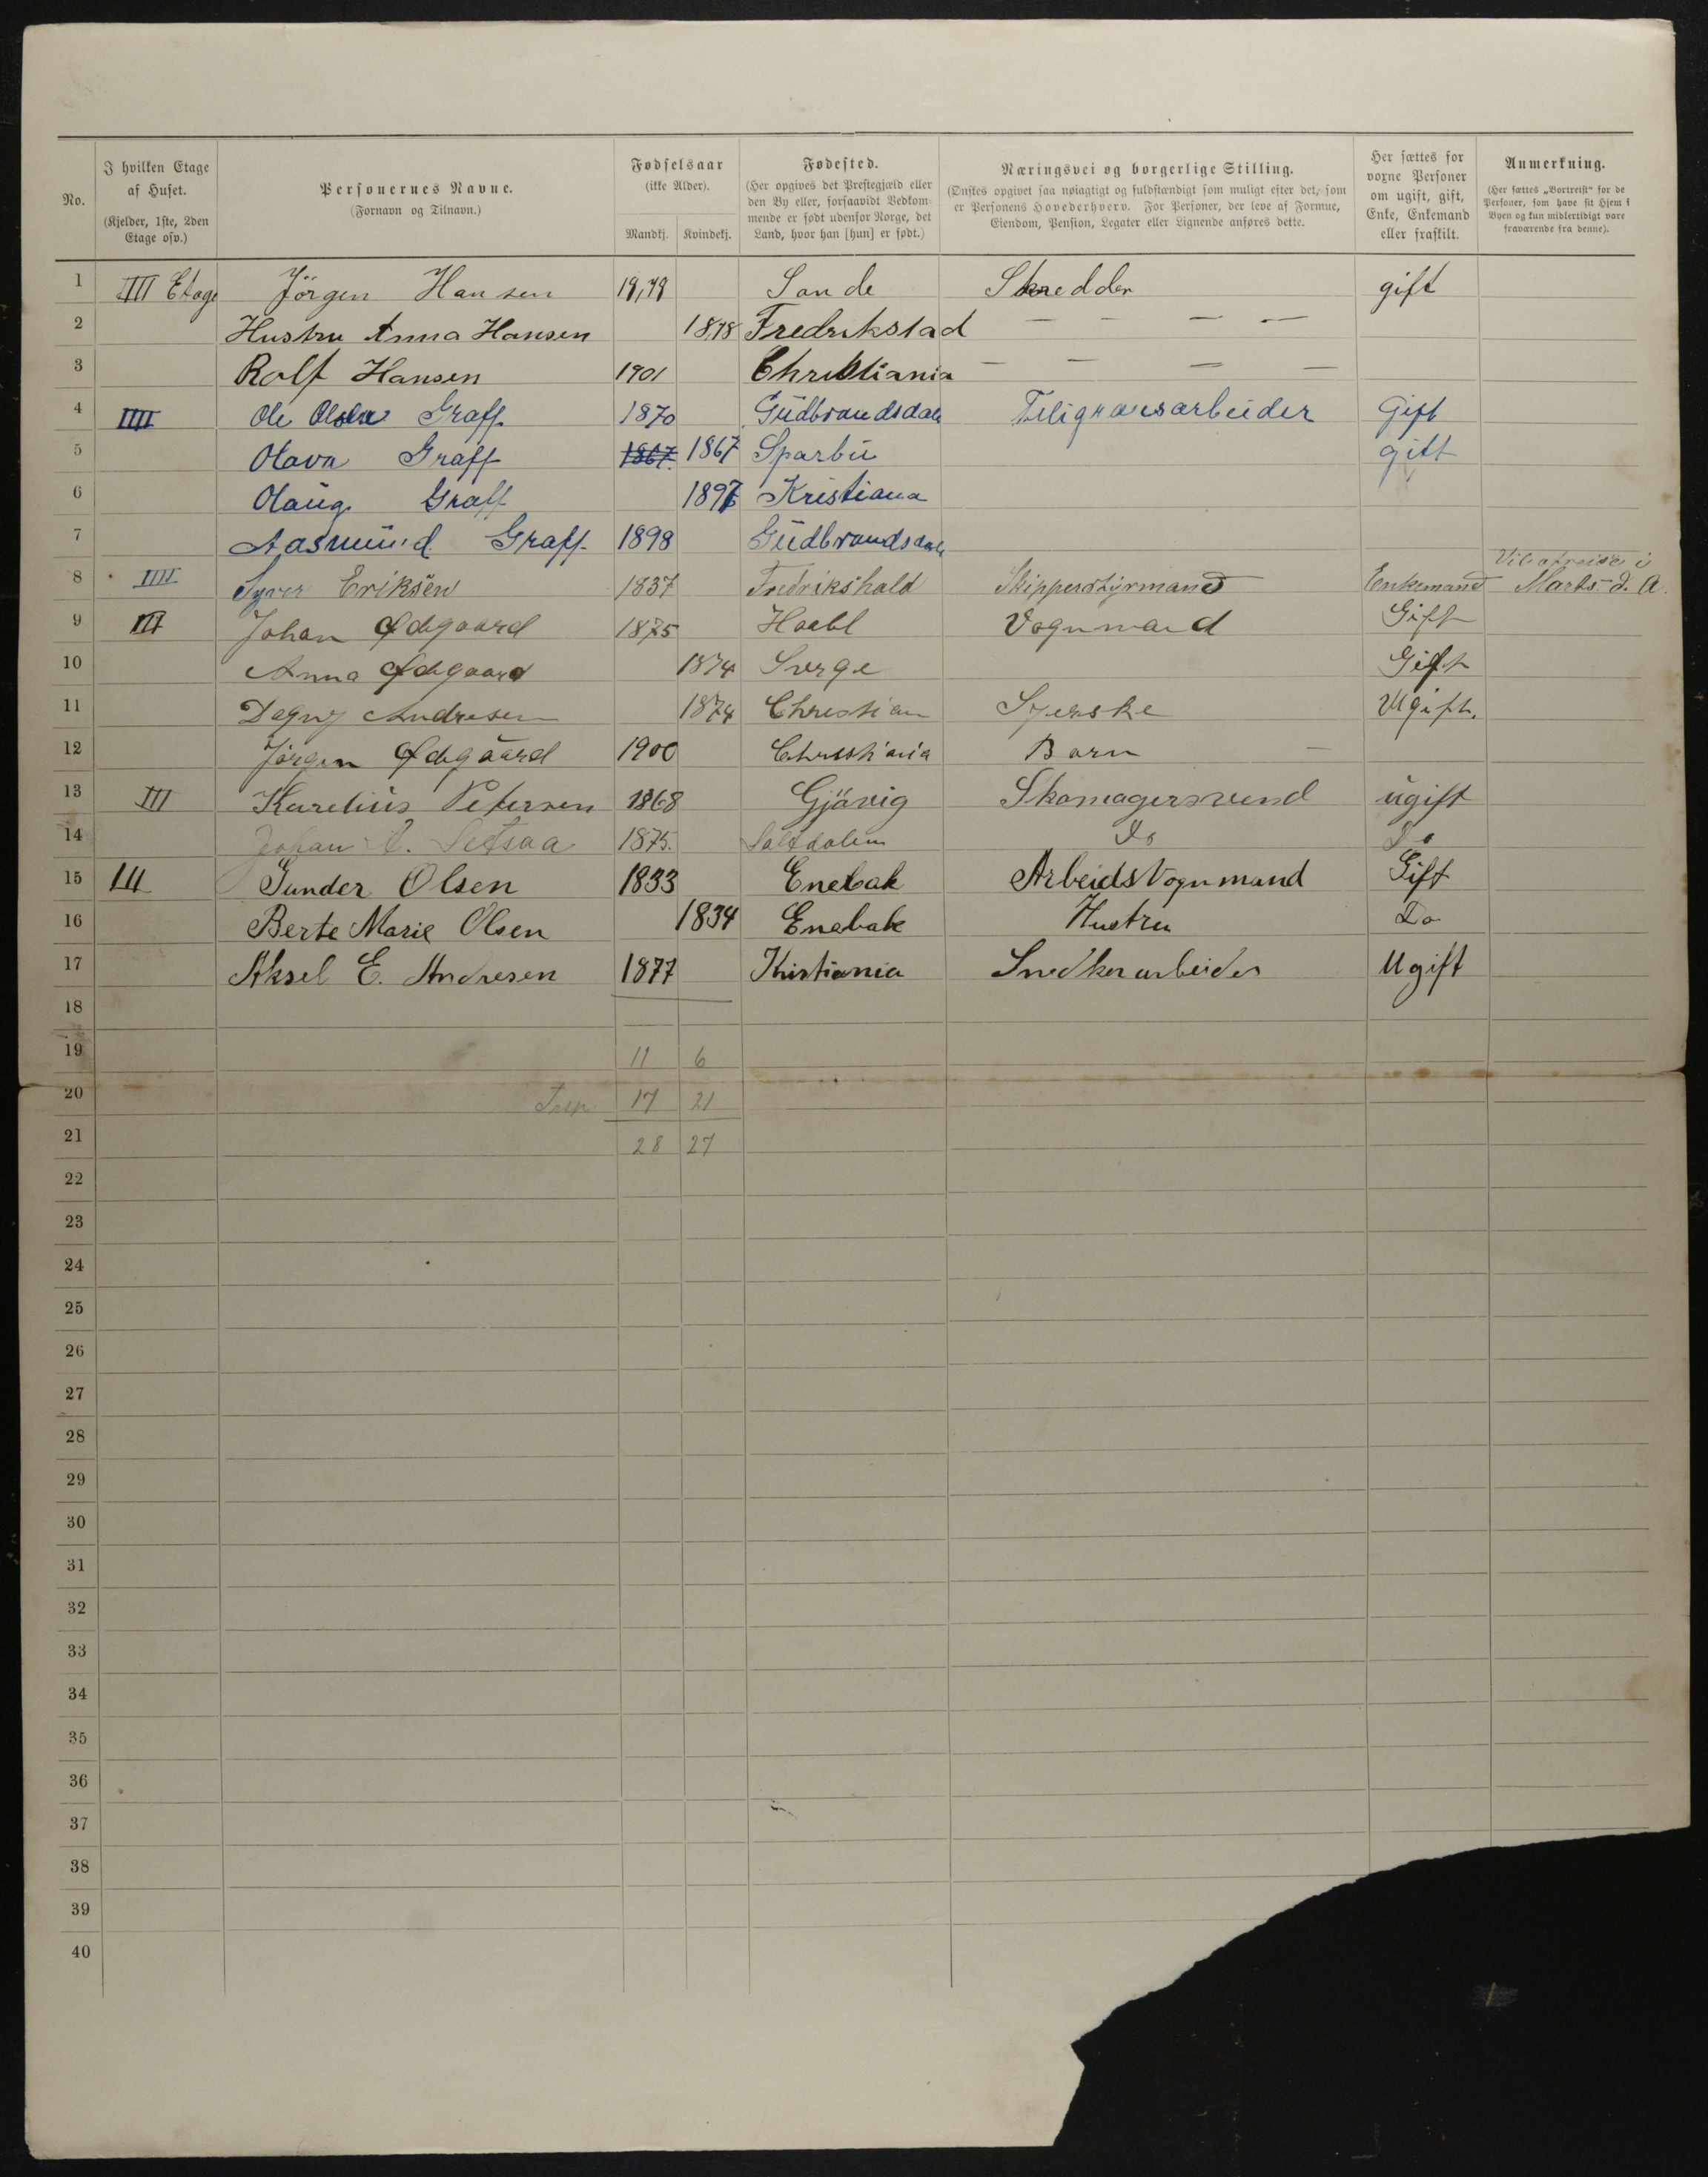 No. I hvilken Etage af Huset. (Kjelder, 1ste, 2den Etage osv.) Personernes Navne. (Fornavn og Tilnavn.) Fødselsaar (ikke Alder). Mandkj. Kvindekj. Fødested. (Her opgives det Prestegjæld eller den By eller, forsaavidt Vedkommende er født udenfor Norge, det Land, hvor han [hun] er født.) Næringsvei og borgerlige Stilling. (Ønskes opgivet saa nøiagtigt og fuldstændigt som muligt efter det, som er Personens Hovederhverv. For Personer, der leve af Formue, Eiendom, Pension, Legater eller Lignende anføres dette. Her sættes for voxne Personer om ugift, gift, Enke, Enkemand eller fraskilt. Anmerkning. (Her sættes „Bortreist“ for de Personer, som have sit Hjem i Byen og kun midlertidigt vare fraværende fra denne).
1 IIII Etage Jörgen Hansen 18,78 Sande Skredder gift
2 Hustru Anna Hansen 1878 Fredrikstad — — — —
3 Rolf Hansen 1901 Christiania — — — —
4 IIII Ole Olsen Graff 1870 Gudbrandsdalen Teligrafsarbeider Gift
5 Olava Graff 1867 1867 Sparbu gift
6 Olaug Graff 1897 Kristiana
7 Aasmund Graff 1898 Gudbrandsdalen
8 IIII Syver Eriksen 1837 Fredrikshald Skipperstyrmand Enkemand Vil afreise i Marts d. A.
9 III Johan Ødegaard 1875 Haabl Vognmand Gift
10 Anna Ødegaard 1874 Sverge Gift
11 Dagny Andresen 1874 Christian Syerske Ugift.
12 Jörgen Ødegaard 1900 Christiania Barn —
13 III Karelius Petersen 1868 Gjövig Skomagersvend ugift
14 Johan A. Setsaa 1875. Saltdalen Do Do
15 III Gunder Olsen 1833 Enebak Arbeids Vognmand Gift
16 Berte Marie Olsen 1834 Enebak Hustru Do
17 Aksel E. Andresen 1877 Kristiania Snedkerarbeider Ugift
18
19 11 6
20 Trsp. 17 21
21 28 27
22
23
24
25
26
27
28
29
30
31
32
33
34
35
36
37
38
39
40